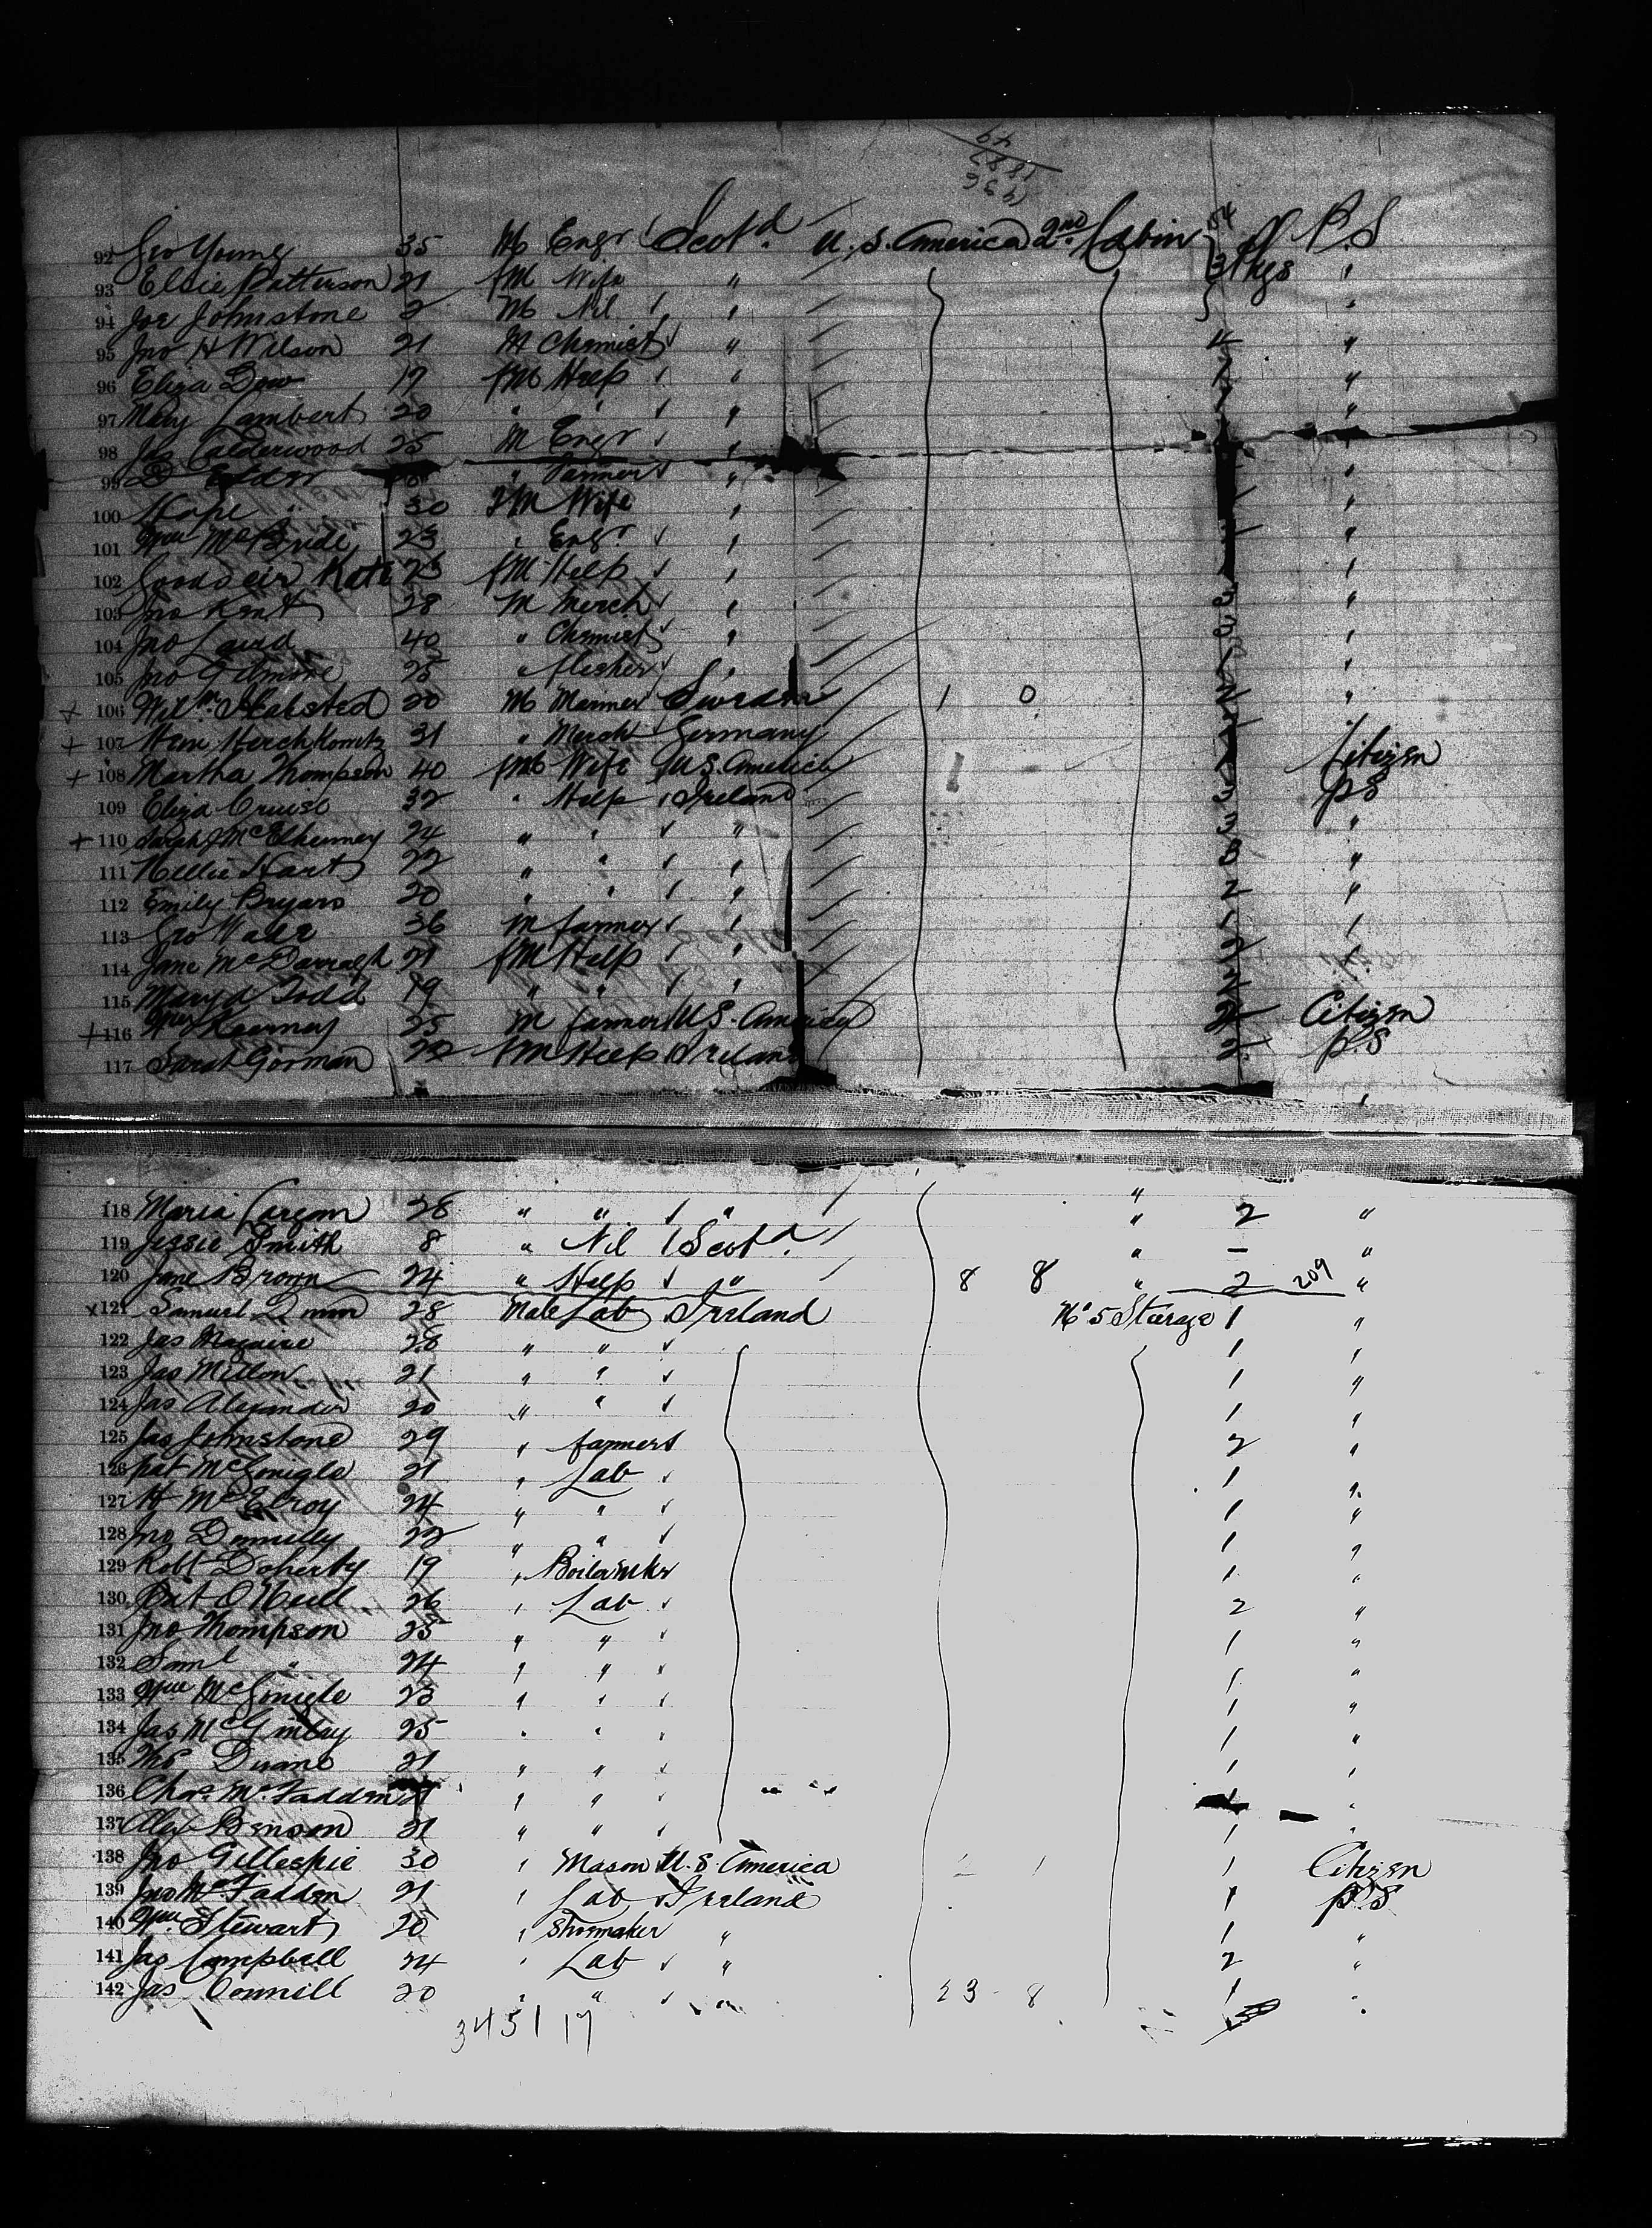 92 Geo Young 35 M Engr Scotd U.S. America 2nd Cabin P.S
93 Elsie Patterson 21 fM Wife " 3 Pkgs "
94 Joe Johnstone 2 M Nil " "
95 Jno H Wilson 21 M Chemist " 4 "
96 Eliza Dow 19 fM Help " "
97 Mary Lambert 20 " " " "
98 Jas Calderwood 25 M Engr " "
99 D " Farmer " "
100 Hope " 30 fM Wife " "
101 Wm McBride 23 " Engr. " "
102 Goodseir Kate 23 fM Help " "
103 Jno Kent 28 M Merch " "
104 Jno Laird 40 " Chemist " "
105 Jno Gilmore 25 " flesher " "
+ 106 20 M Mariner Sweden 1 0 "
+ 107 31 " Merch Germany
+ 108 Martha Thompson 40 fM Wife U.S. America Citizen
109 Eliza 32 " Help Ireland P.S
+ 110 Sarah McElhenney 24 " " " 3 "
111 Nellie Hart 22 " " " 3 "
112 Emily Bryars 20 " " " 2 "
113 Geo 36 M farmer " "
114 Jane McDarragh 21 fM Help " 2 "
115 Mary A Todd 19 " " " 2
+ 116 Wm Kearney 25 M farmer U.S. America 2 Citizen
117 Sarah Gorman 22 fM Help Ireland 2 P.S
118 Maria 28 " " " " 2 "
119 Jessie Smith 8 " Nil Scotd. " - "
120 Jane Brown 24 " Help " 8 8 " 2 209 "
x 121 Samuel 28 Male Lab Ireland No 5 Sterage 1 "
122 Jas Maguire 28 " " 1 "
123 Jas 21 " " 1 "
124 Jas Alexander 20 " " 1 "
125 Jas Johnstone 29 " farmer 2 "
126 Pat McGonigle 21 " Lab 1 "
127 H McElroy 24 " " 1 "
128 Jno Donnelly 22 " " 1 "
129 Robt Doherty 19 " Boilermkr 1 "
130 Pat O'Neill 26 " Lab 2 "
131 Jno Thompson 25 " " 1 "
132 Saml " 24 " " 1 "
133 Wm McGonigle 23 " " 1 "
134 Jas McGinley 25 " " 1 "
135 Duane 21 " " 1 "
136 Chas McFadden " " 1 "
137 Alex Benson 21 " " 1 "
138 Jno Gillespie 30 " Mason U.S. America 1 1 Citizen
139 Jno McFadden 21 " Lab Ireland 1 P.S
140 Wm Stewart 20 " Shoemaker " 1 "
141 Jas Campbell 24 " Lab " 2 "
142 Jas Connell 20 " " " 23 - 8 1 "